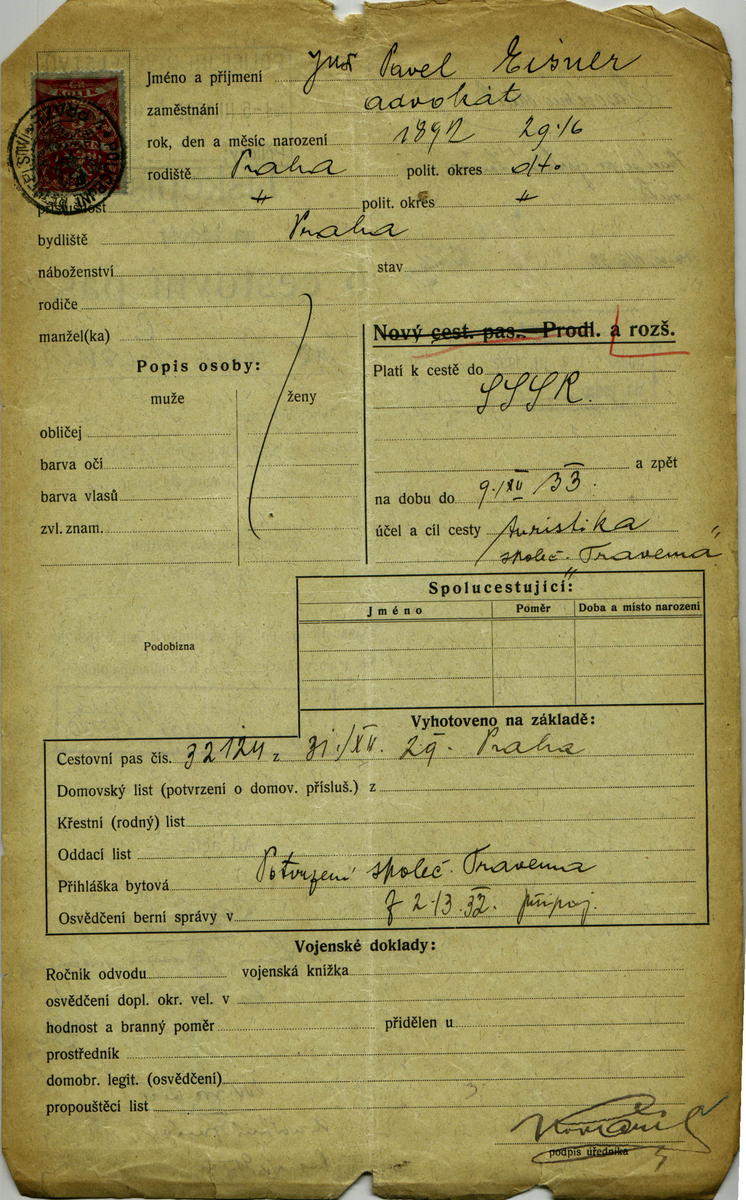 KOLEK
Jméno a přijmení JUDr Pavel Eisner
zaměstnání advokát
rok, den a měsíc narození 1892 29./6
rodiště Praha polit. okres dto.
příslušnost " polit. okres "
bydliště Praha
náboženství stav
rodiče
manžel(ka)
Nový cest. pas., Prodl. a rozš.
Popis osoby:
muže ženy
obličej
barva očí
barva vlasů
zvl. znam.
Platí k cestě do
SSSR.
a zpět
na dobu do 9./XII 33.
účel a cíl cesty turistika
společ. "Travema"
Spolucestující:
Jméno Poměr Doba a místo narození
Podobizna
Vyhotoveno na základě:
Cestovní pas čís. 32124 z 31./XII. 29. Praha
Domovský list (potvrzení o domov. přísluš.) z
Křestní (rodný) list
Oddací list
Potvrzení společ. Travema
Přihláška bytová
Osvědčení berní správy v z 2./3. 32. připoj.
Vojenské doklady:
Ročník odvodu vojenská knížka
osvědčení dopl. okr. vel. v
hodnost a branný poměr přidělen u
prostředník
domobr. legit. (osvědčení)
propouštěcí list
podpis úředníka